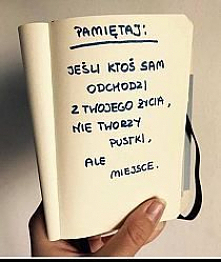 PAMIĘTAJ:
JEŚLI KTOŚ SAM
ODCHODZI
Z TWOJEGO ŻYCIA,
NIE TWORZY
PUSTKI,
ALE
MIEJSCE.